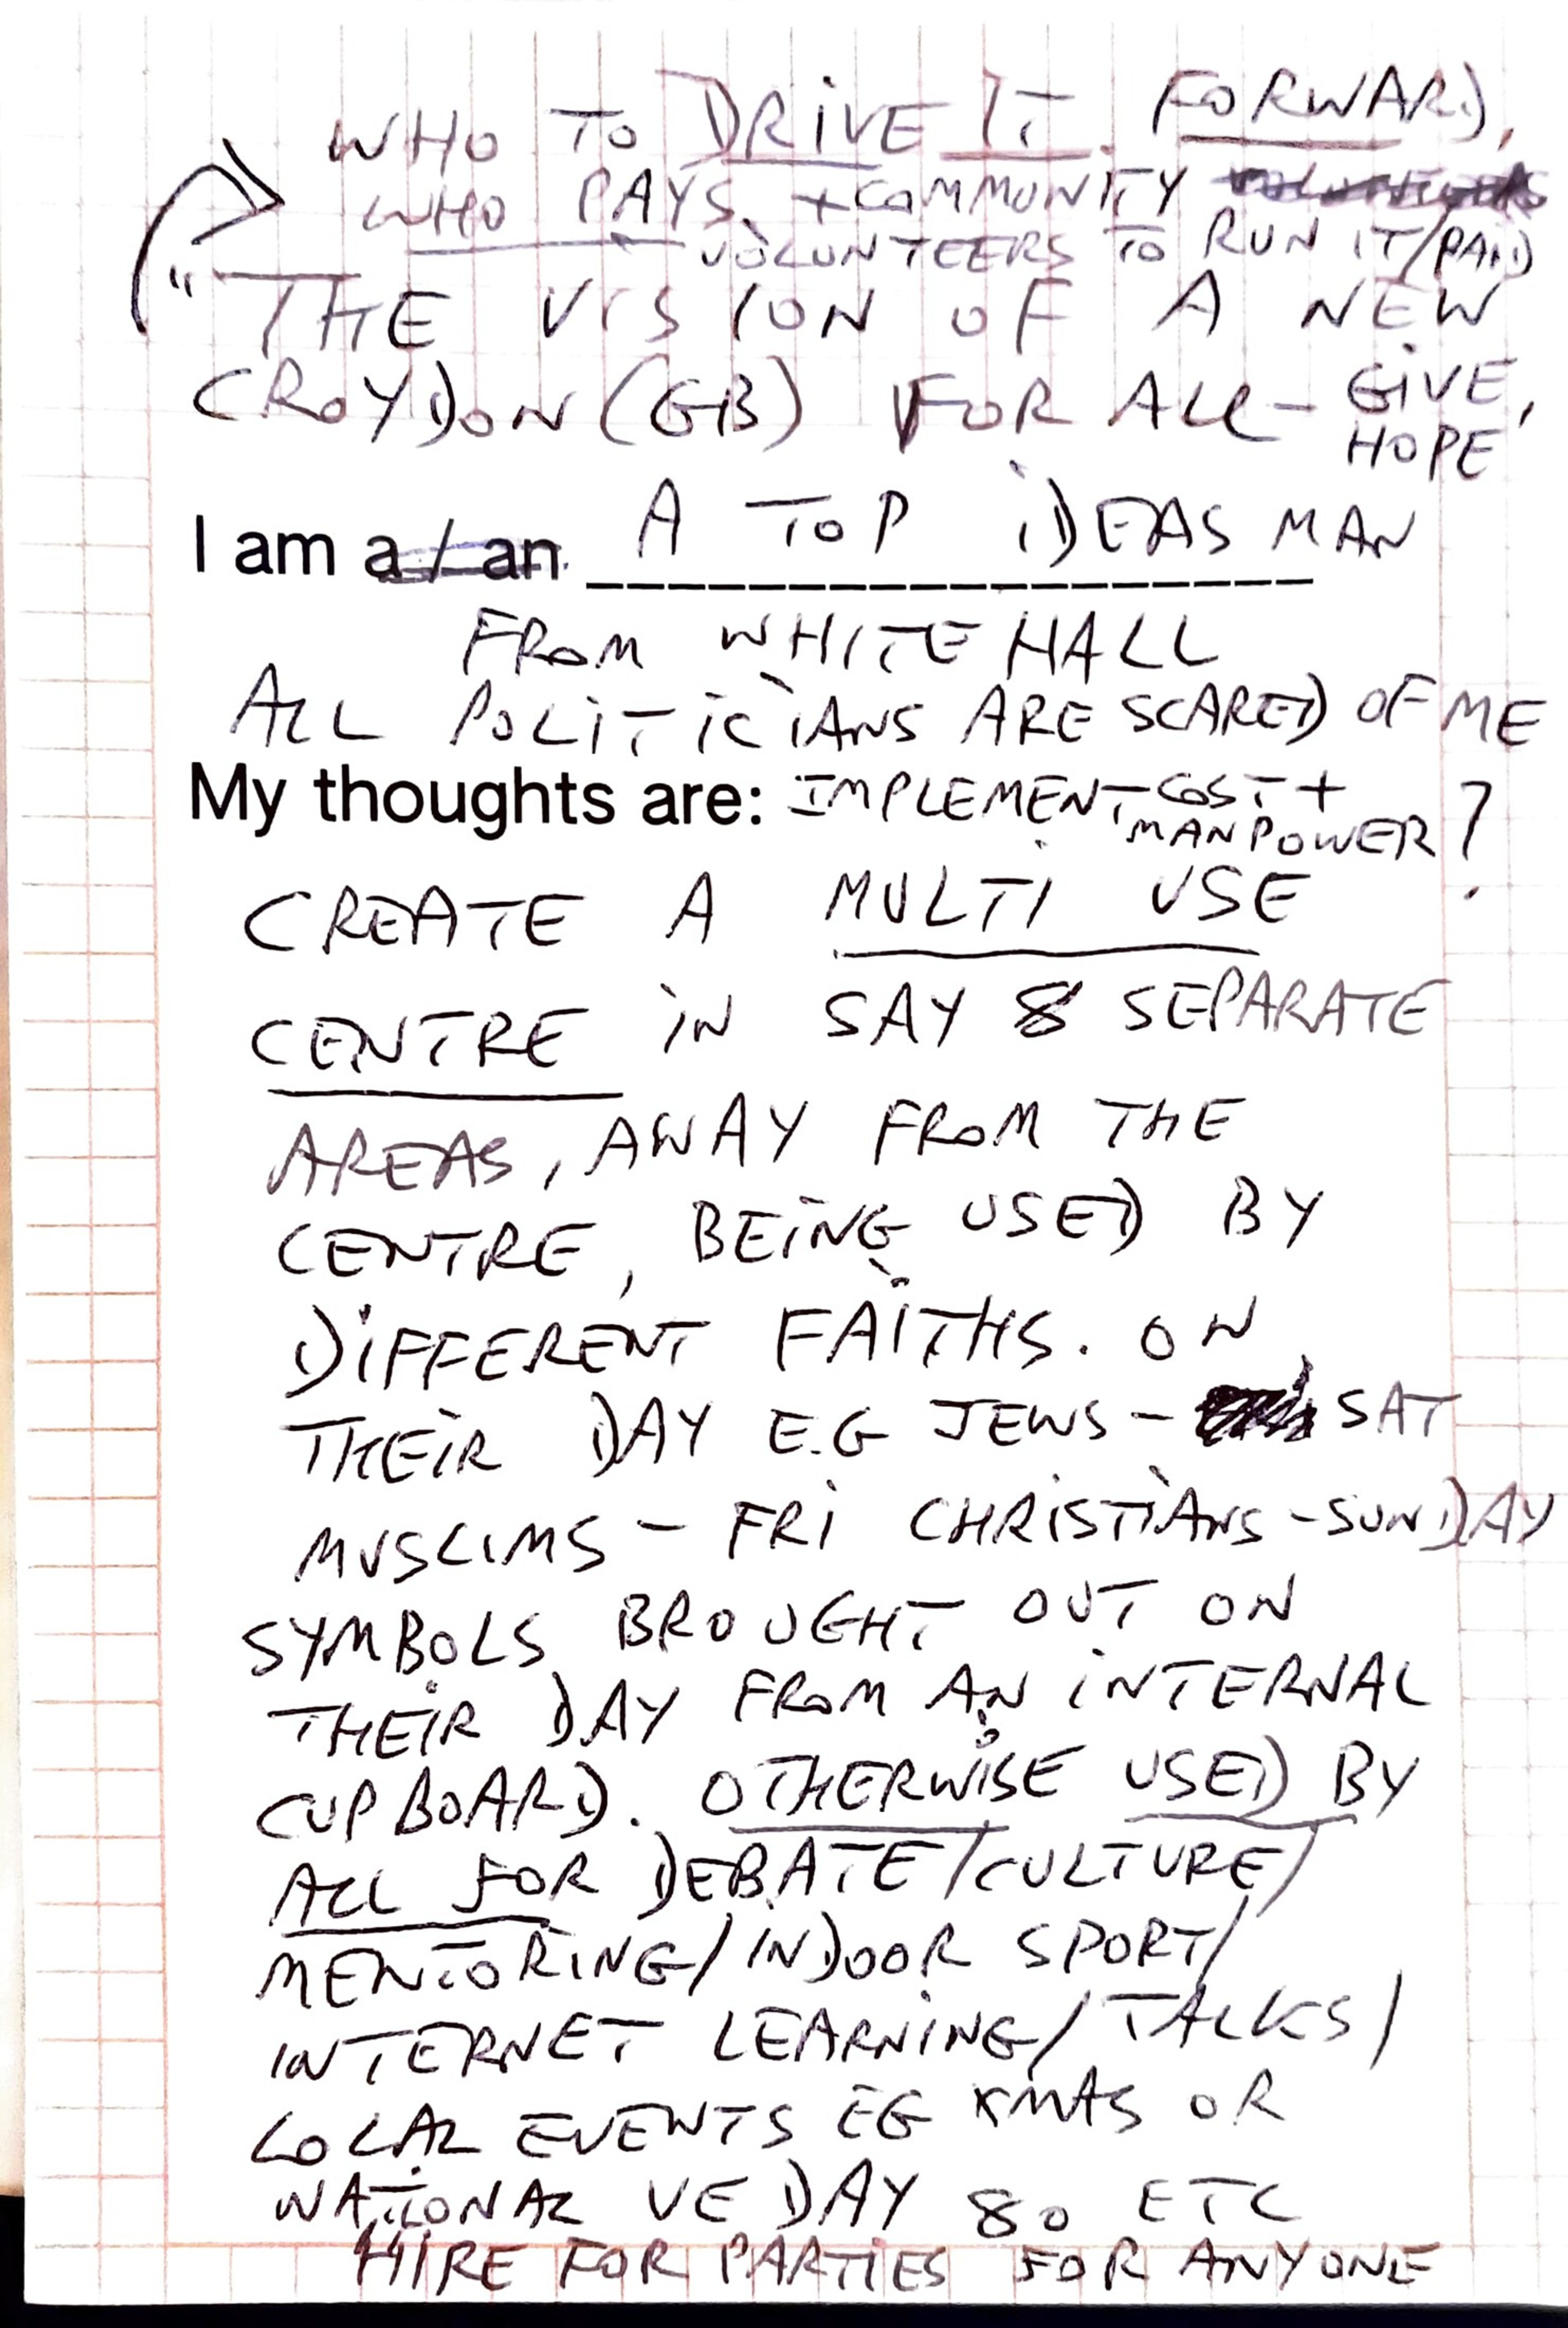 WHO TO DRIVE IT FORWARD,
WHO PAYS, + COMMUNITY
VOLUNTEERS TO RUN IT/PAID
"THE VISION OF A NEW
CROYDON (GB) FOR ALL - GIVE,
HOPE
I am a / an A TOP IDEAS MAN
FROM WHITE HALL
ALL POLITICIANS ARE SCARED OF ME
My thoughts are: IMPLEMENT - COST +
MANPOWER ?
CREATE A MULTI USE
CENTRE IN SAY 8 SEPARATE
AREAS, AWAY FROM THE
CENTRE, BEING USED BY
DIFFERENT FAITHS. ON
THEIR DAY E.G JEWS - SAT
MUSLIMS - FRI CHRISTIANS - SUNDAY
SYMBOLS BROUGHT OUT ON
THEIR DAY FROM AN INTERNAL
CUPBOARD. OTHERWISE USED BY
ALL FOR DEBATE/CULTURE/
MENTORING/INDOOR SPORT/
INTERNET LEARNING/TALKS/
LOCAL EVENTS EG XMAS OR
NATIONAL VE DAY 80 ETC
HIRE FOR PARTIES FOR ANYONE